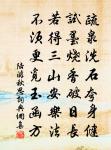 疏泉洗石夸身健
試墨燒香破日長
若得三山安樂法
不須更覓玉函方
陸游秋思詞典網集